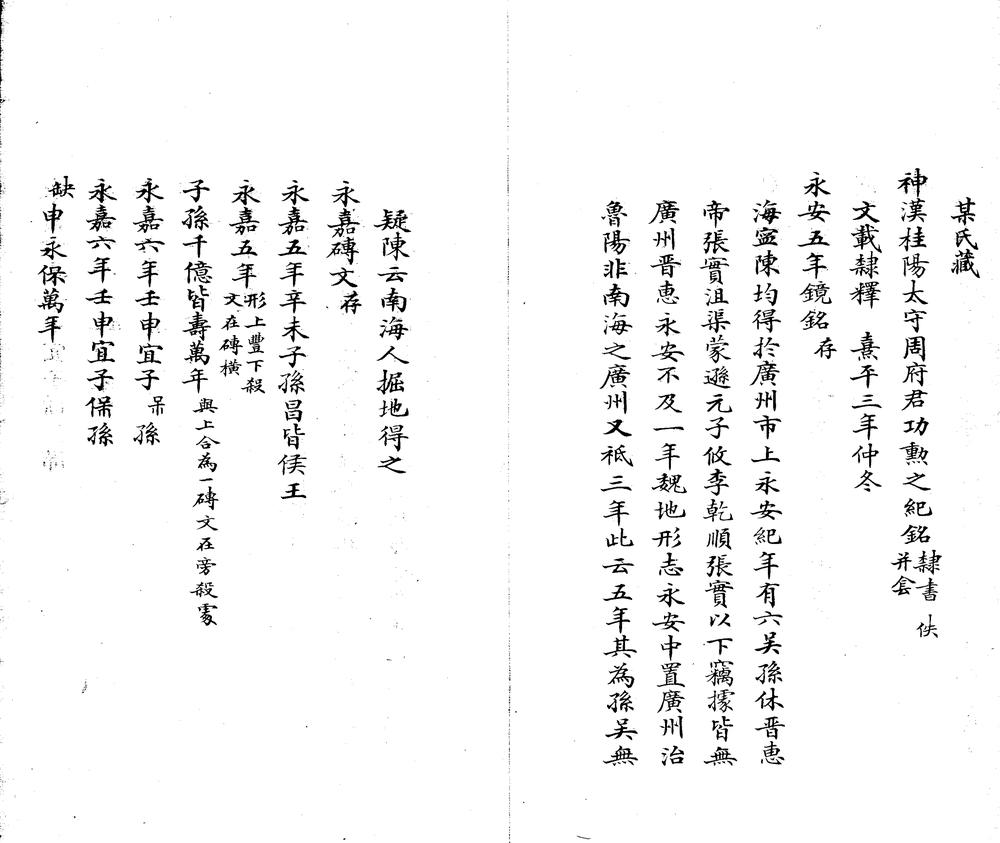 某氏藏
神漢桂陽太守周府君功勲之紀銘 隸書并套 佚
文載隸釋 熹平三年仲冬
永安五年鏡銘 存
海寍陳均得於廣州市上永安紀年有六吴孫休晋惠
帝張實沮渠蒙遜元子攸李乾順張實以下竊據皆無
廣州晋惠永安不及一年魏地形志永安中置廣州治
魯陽非南海之廣州又祗三年此云五年其為孫吴無
疑陳云南海人掘地得之
永嘉磚文 存
永嘉五年辛未子孫昌皆侯王
永嘉五年 形上豐下殺文在磚横
子孫千億皆壽萬年 與上合為一磚文在旁殺䖏
永嘉六年壬申宜子 呆 孫
永嘉六年壬申宜子保孫
缺 申永保萬年